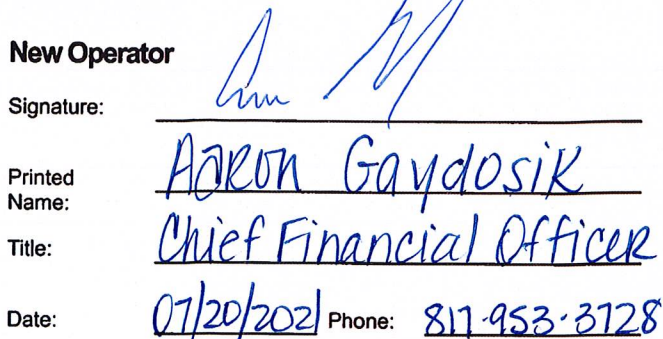 New Operator
Signature:
Printed Name: Aaron Gaydosik
Title: Chief Financial Officer
Date: 07/20/2021 Phone: 817-953-3728